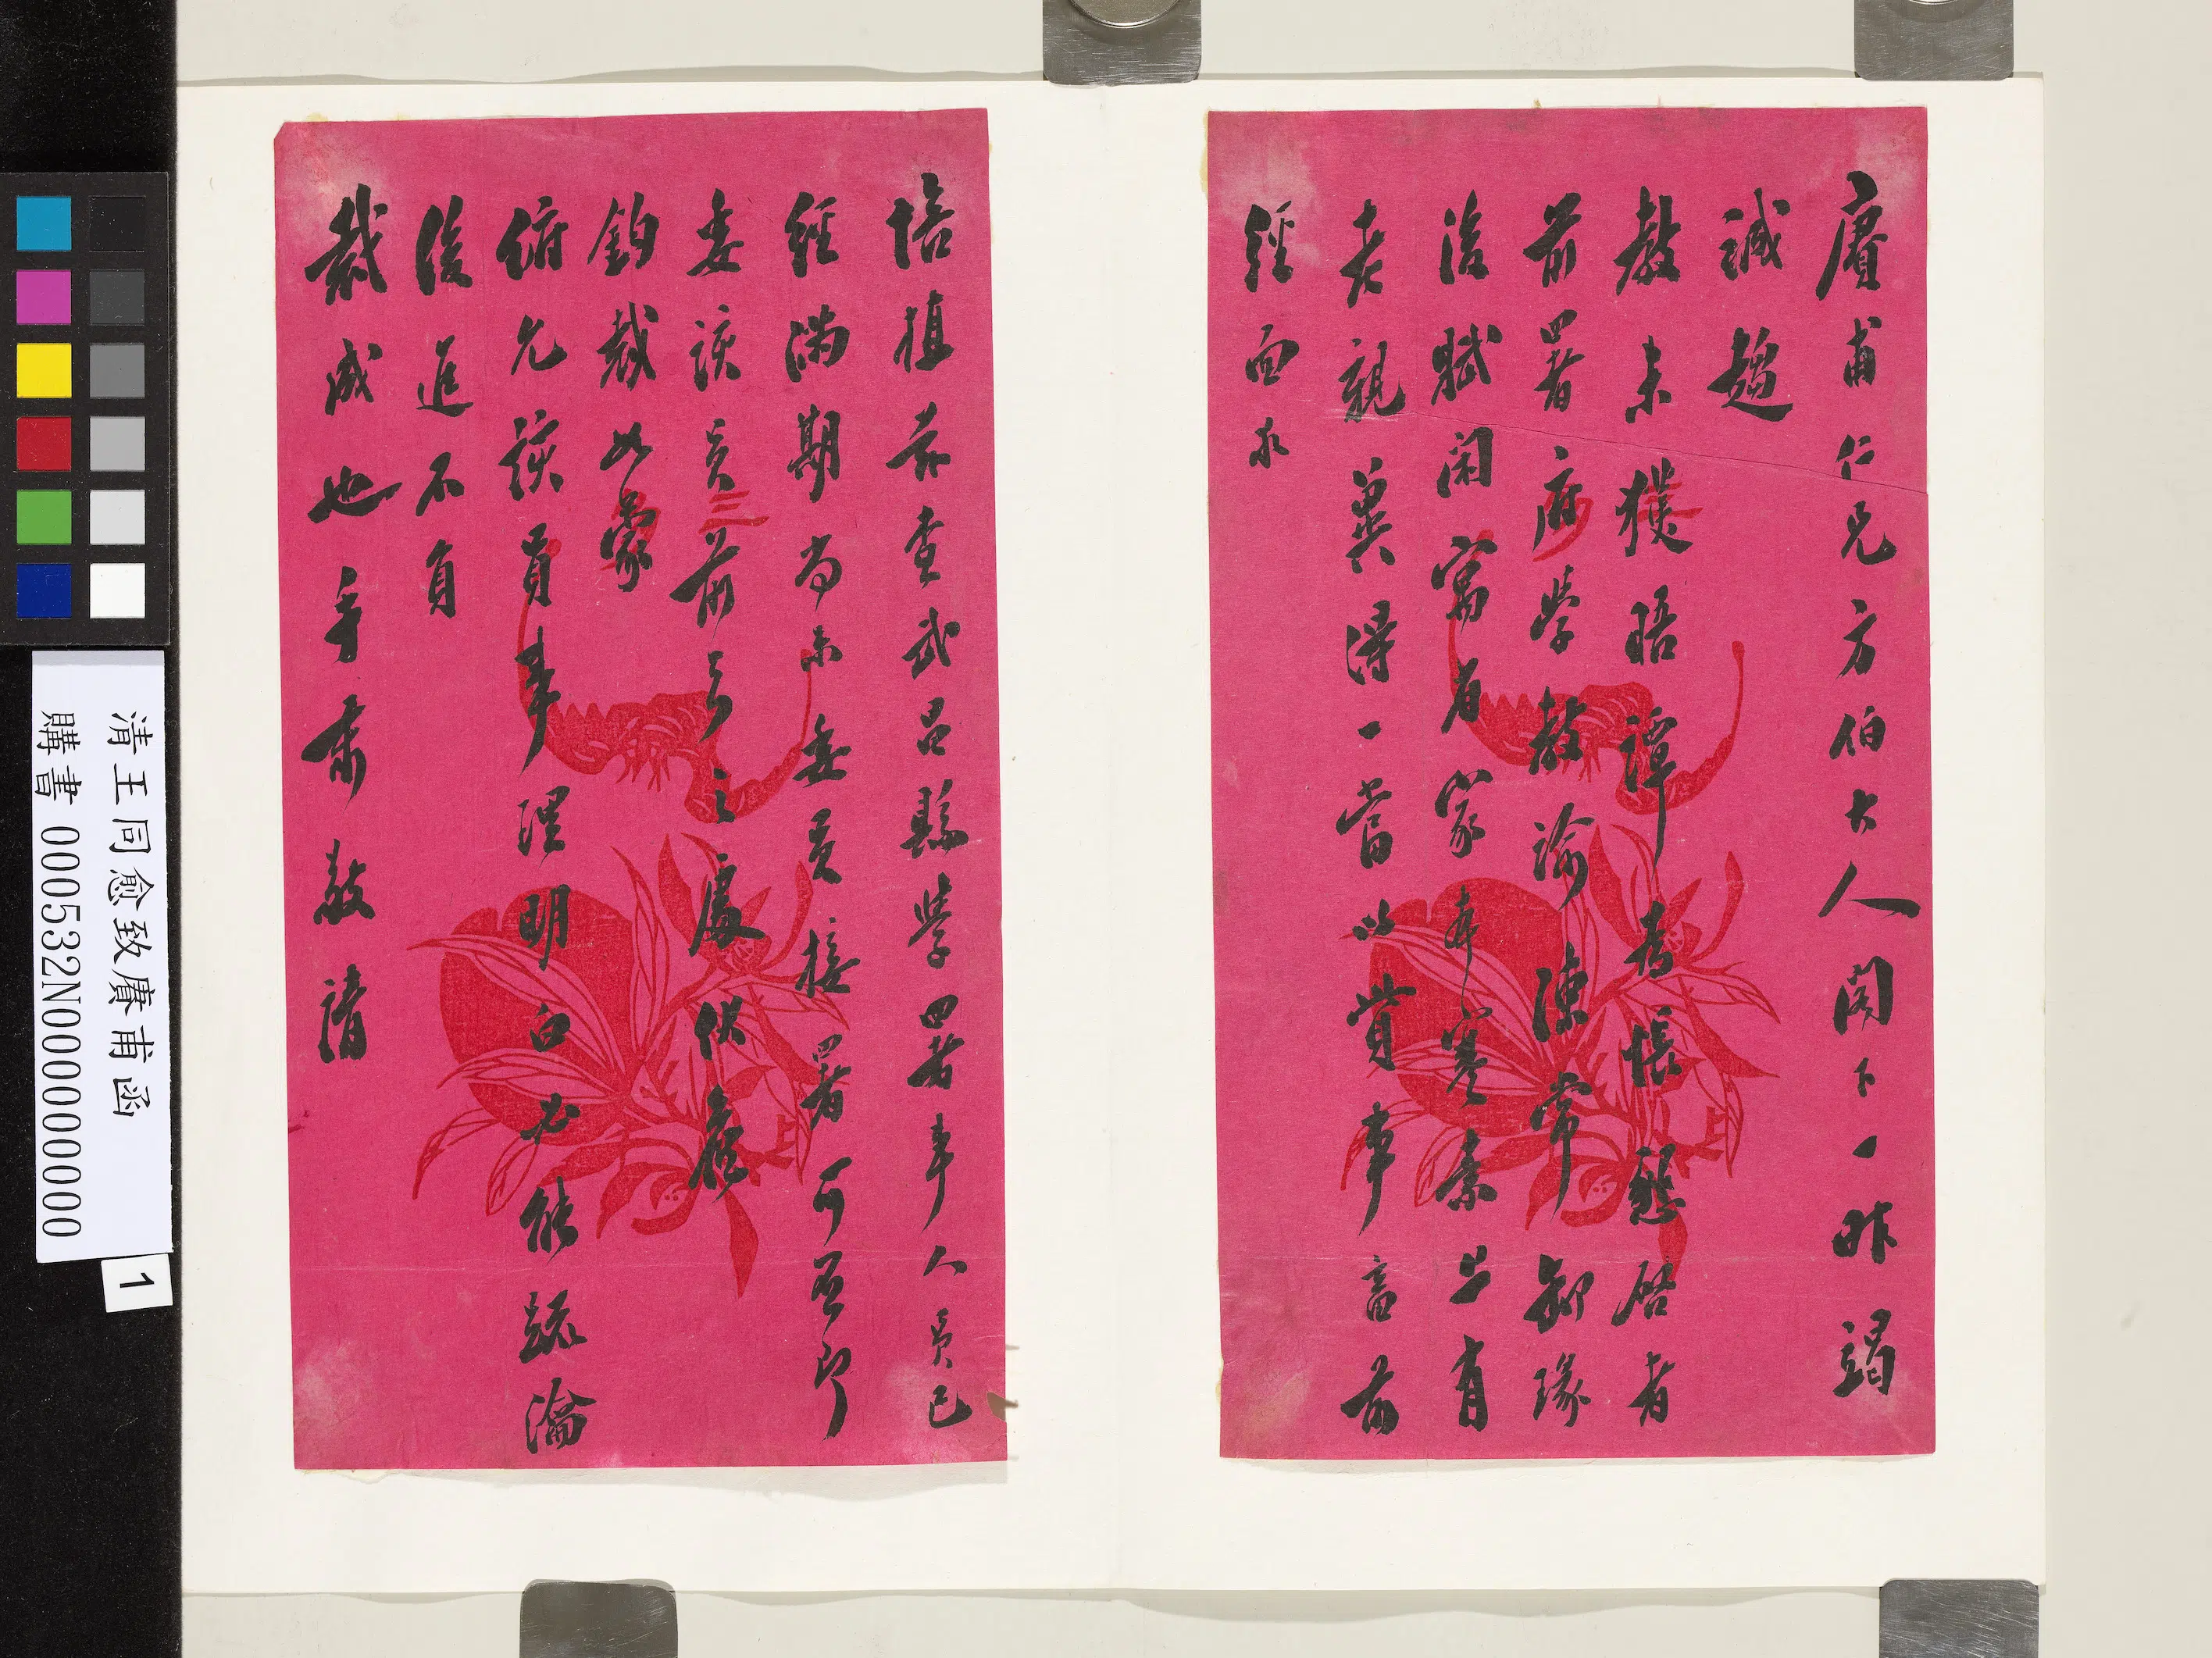 賡甫仁兄方伯大人閣下一昨竭
誠趨
教未獲晤譚為悵懇啓者
前署府學教諭陳常卸緣
後賦閒寓省家本寒素上有
老親冀得一當以資事畜前
經面求
培植茲查武昌縣學署事人員已
經滿期尚未委員接署可否即
委該員前去之處伏候
鈞裁如蒙
俯允該員事理明白必能疏瀹
後進不負
裁成也手肅敬請
清王同愈致賡甫函
購書 000532N000000000
1